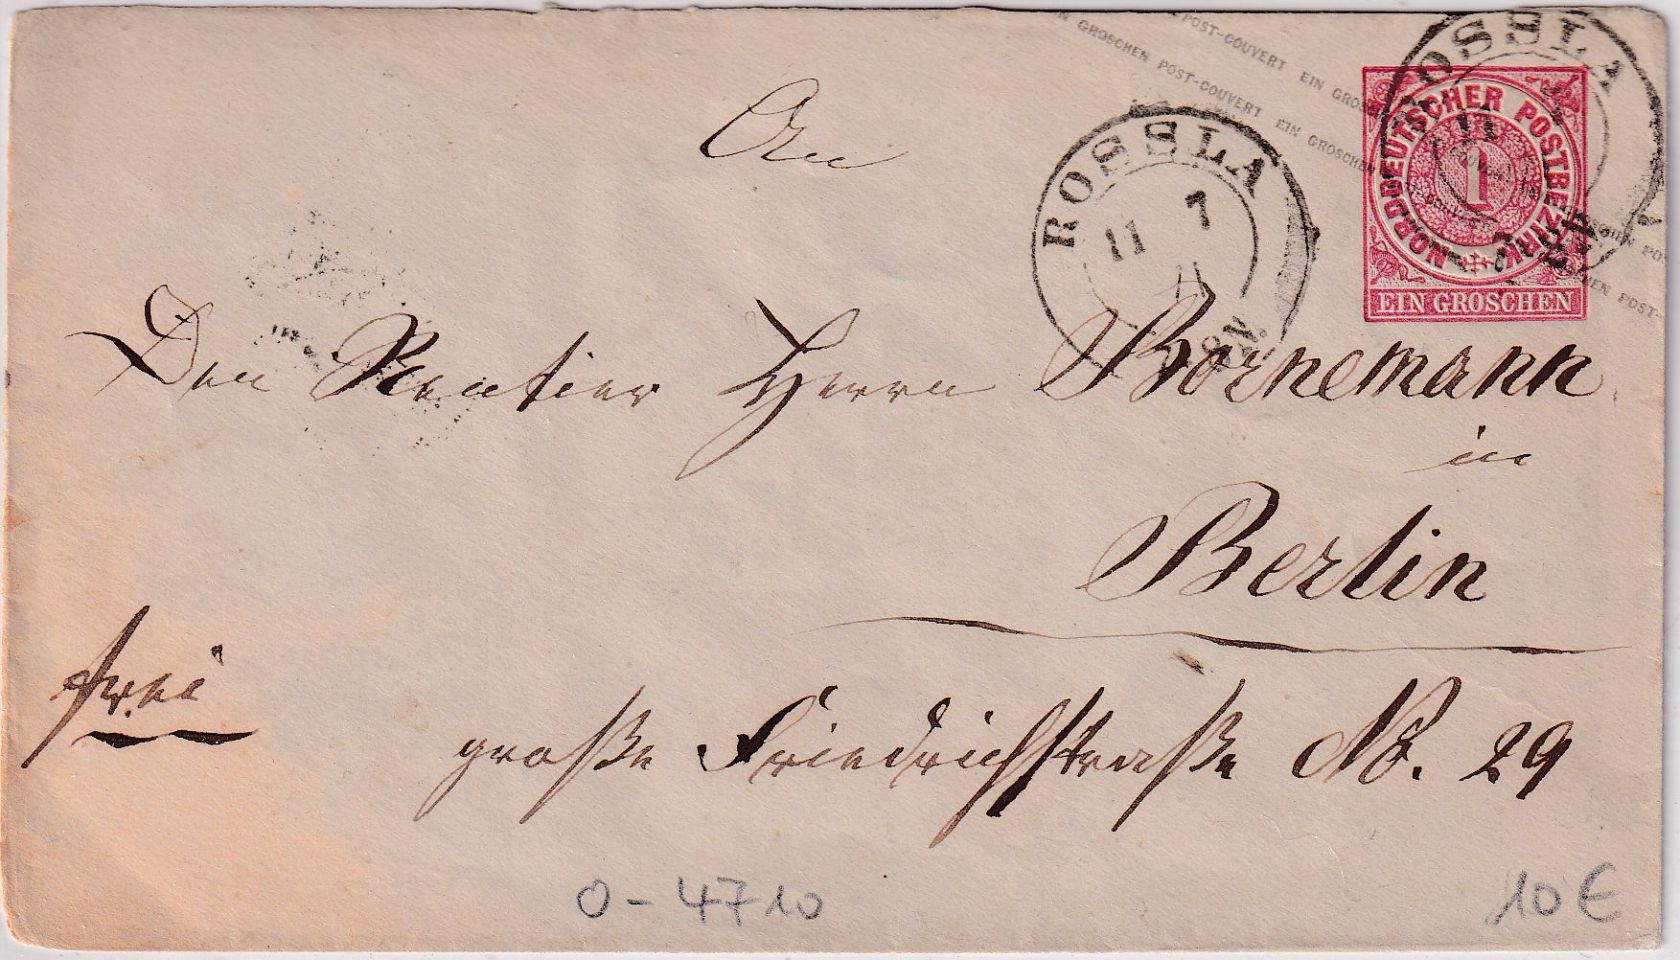 EIN GROSCHEN POST-COUVERT EIN GROSCHEN
GROSCHEN POST-COUVERT EIN GROSCHEN
ROSSLA
11 7
ROSSLA
11
NORDDEUTSCHER POSTBEZIRK
1
EIN GROSCHEN
An
Den Rentier Herrn Bornemann
in
Berlin
frei
große Friedrichstraße No. 29
0-4710
10€